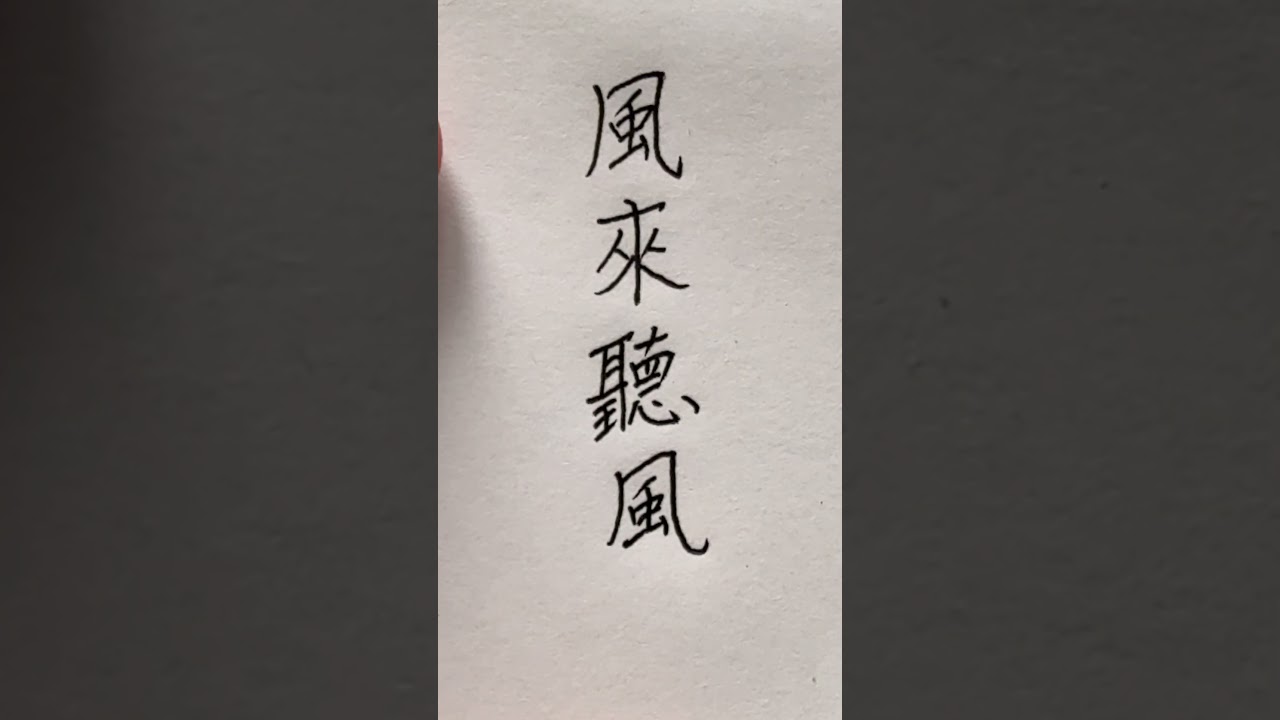 風來聽風